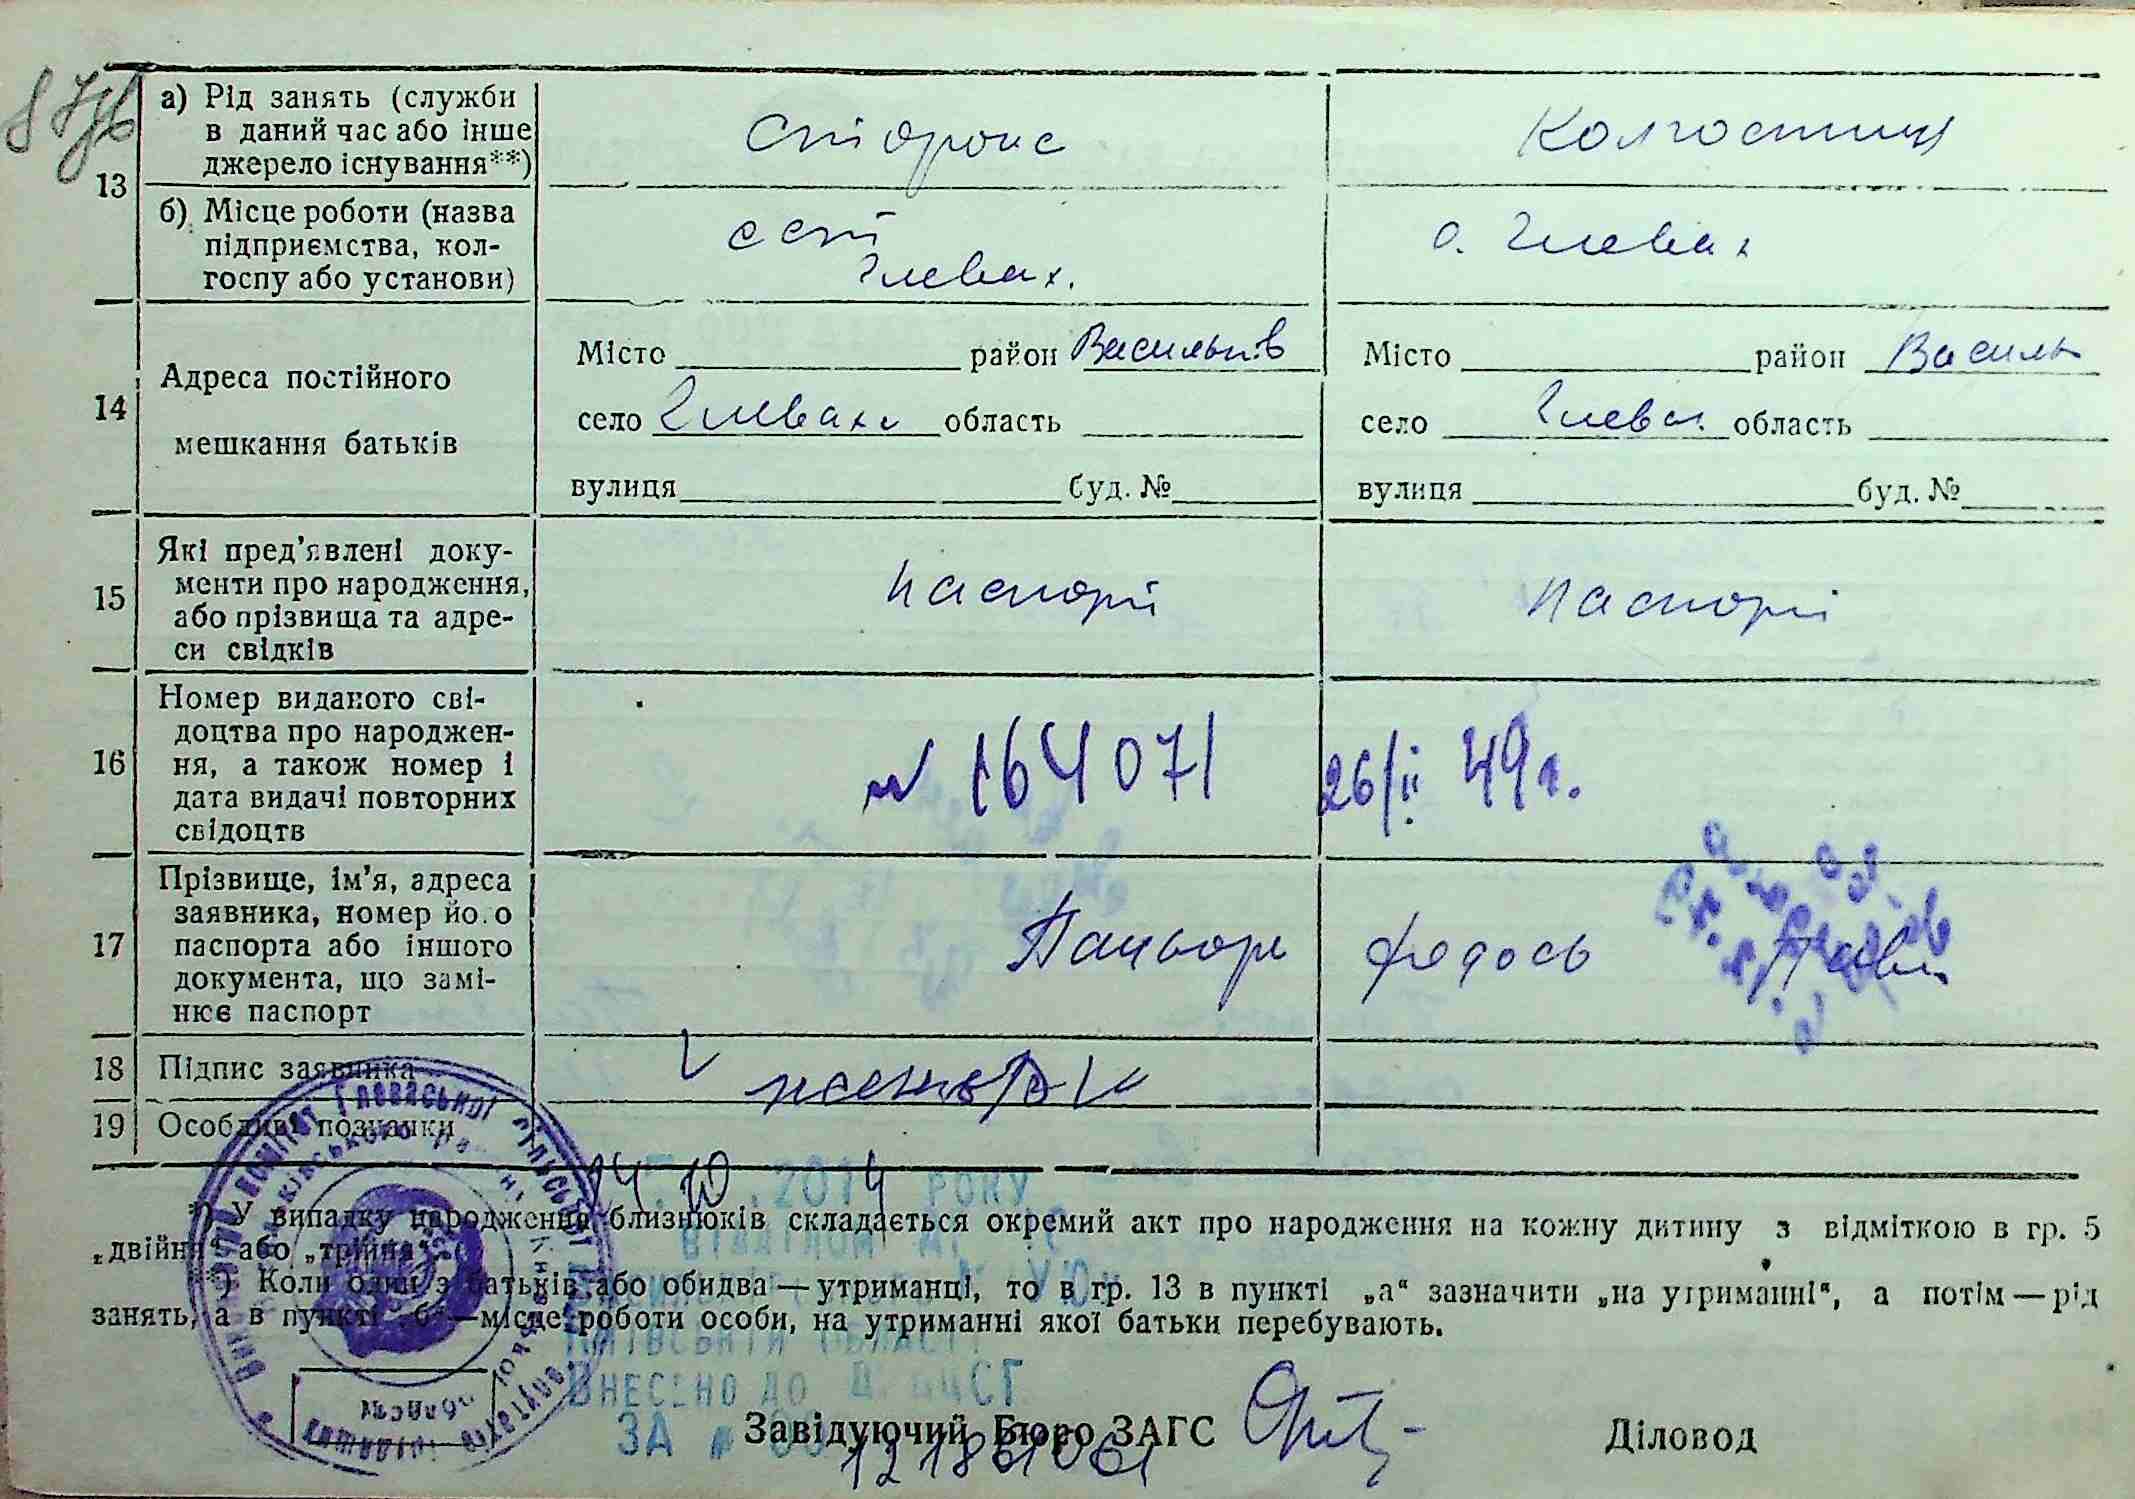 13
а) Рід занять (служби
в даний час або інше
джерело існування**)
Сторож
Колгоспниц
б) Місце роботи (назва
підприємства, кол-
госпу або установи)
ссп
Глевах.
с. Глевах
14
Адреса постійного
мешкання батьків
Місто район Васильків
село Глеваха область
вулиця буд. №
Місто район Василь
село Глевах. область
вулиця буд. №
15
Які пред'явлені доку-
менти про народження,
або прізвища та адре-
си свідків
паспорт
паспорт
16
Номер виданого сві-
доцтва про народжен-
ня, а також номер і
дата видачі повторних
свідоцтв
N 164071 26/II 49 г.
17
Прізвище, ім'я, адреса
заявника, номер його
паспорта або іншого
документа, що замі-
нює паспорт
Федось
18
Підпис заявника
19
Особливі познаки
14.10.2014 РОКУ
*) У випадку народження близнюків складається окремий акт про народження на кожну дитину з відміткою в гр. 5
„двійня“ або „трійня“.
**) Коли один з батьків або обидва — утриманці, то в гр. 13 в пункті „а“ зазначити „на утриманні“, а потім — рід
занять, а в пункті „б“ — місце роботи особи, на утриманні якої батьки перебувають.
КИЇВСЬКІЙ ОБЛАСТІ
ВНЕСЕНО ДО
ЗА №
Завідуючий Бюро ЗАГС
Діловод